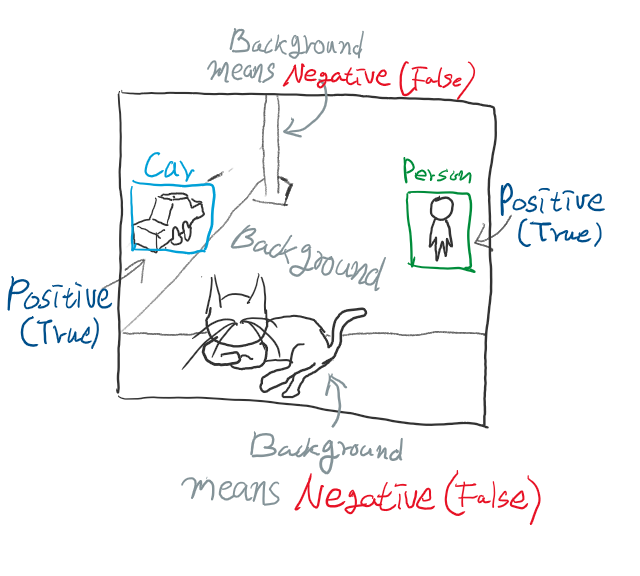 Background
means Negative (False)
Car
Person
Positive
(True)
Background
Positive
(True)
Background
means Negative (False)